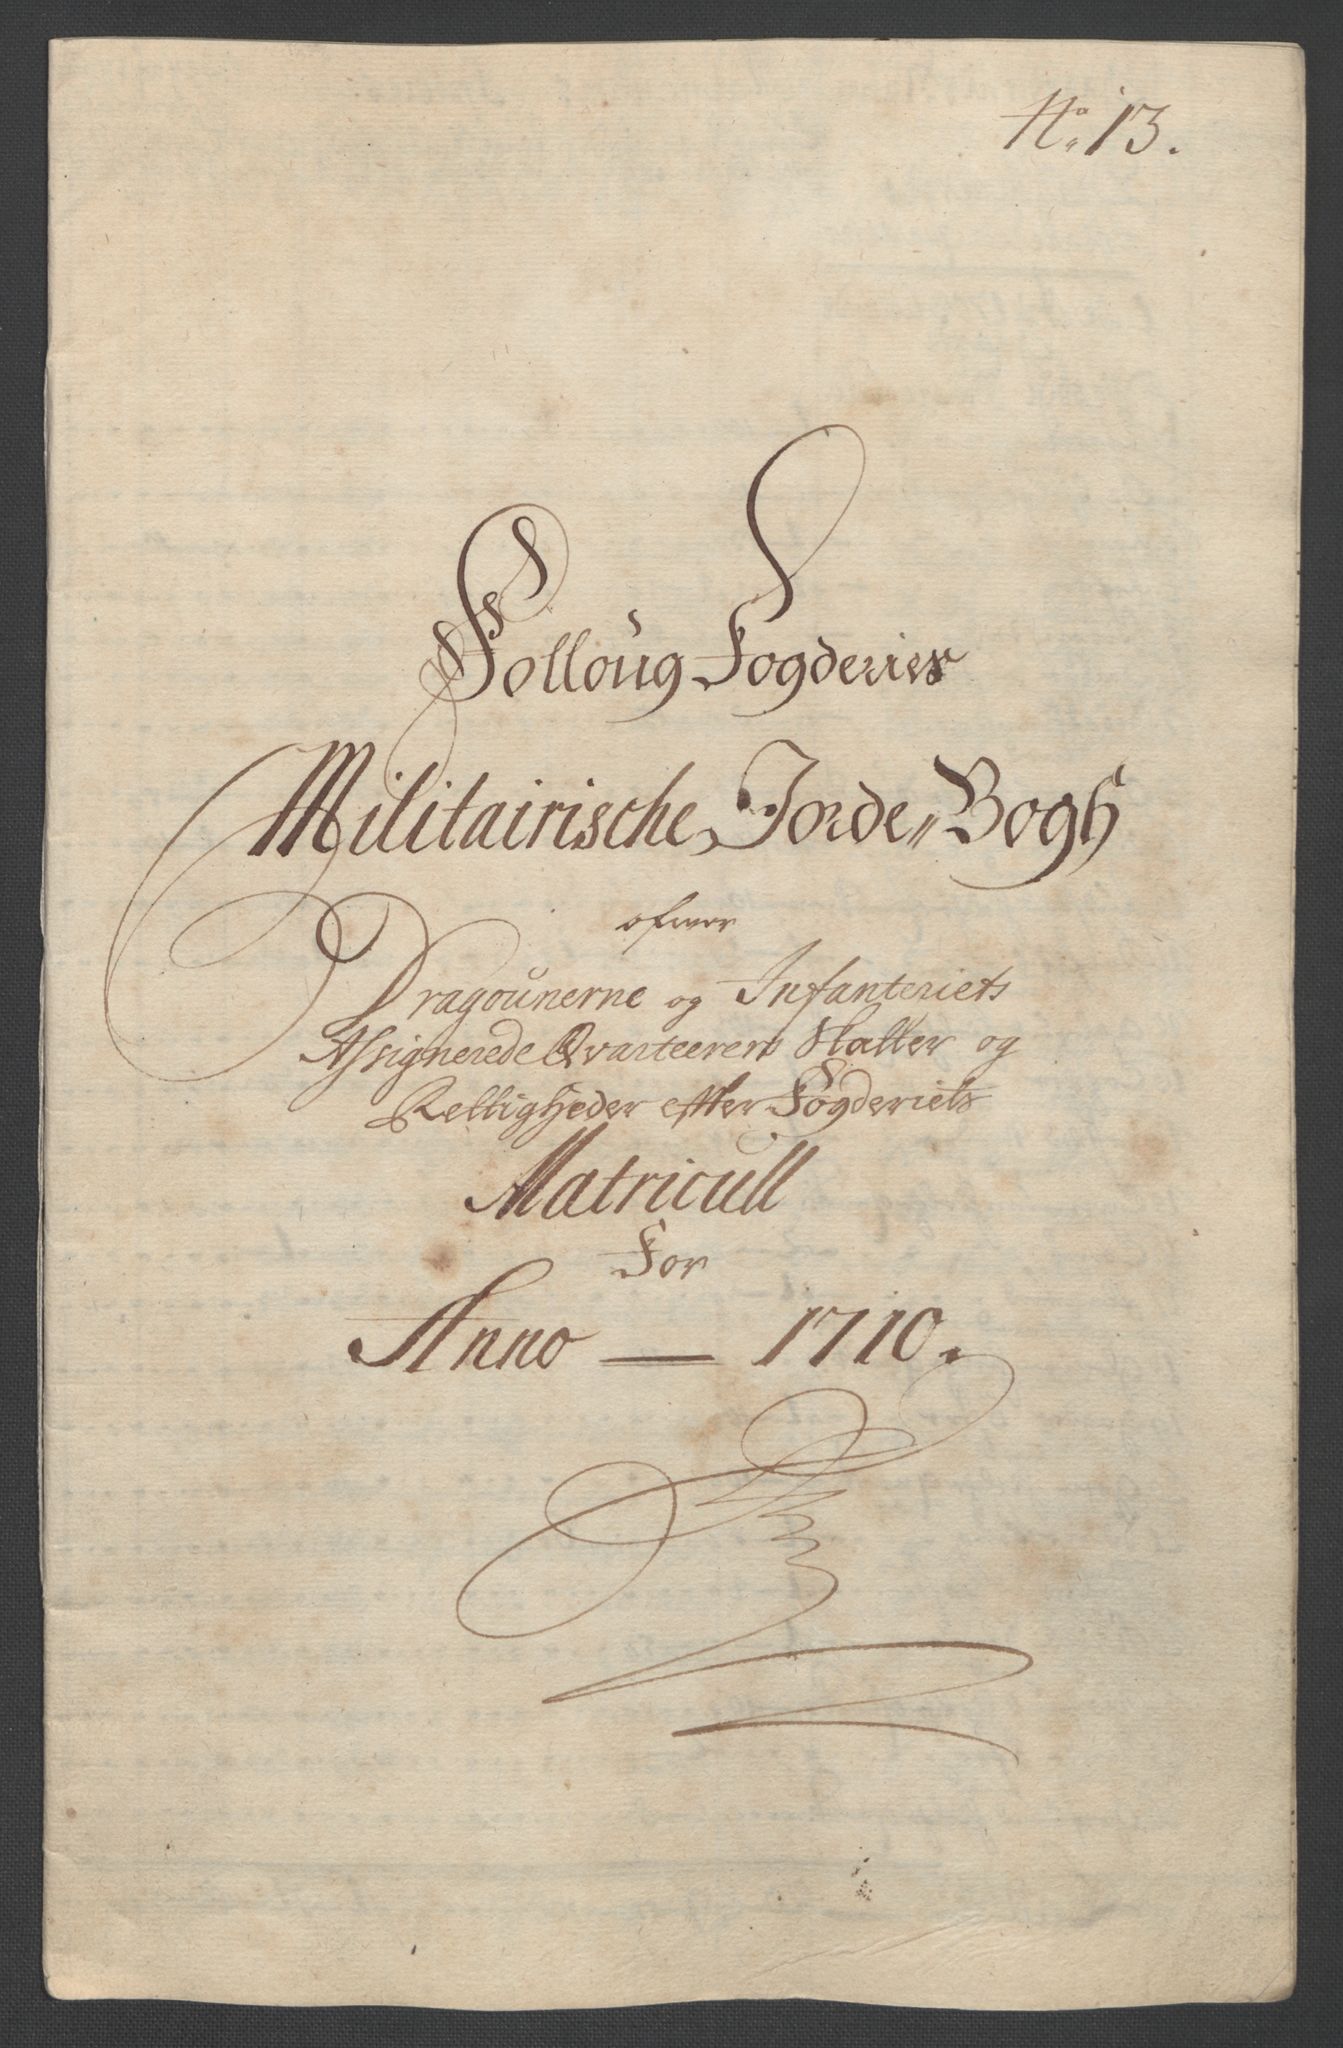 No. 13.
Folloug Fogderies
Militairische Jorde Bogh
ofwer
Dragounerne og Infanteriets
Assignerede Qvarteerers Skatter og
Rettigheder efter Fogderiets
Matricull
For
Anno — 1710.